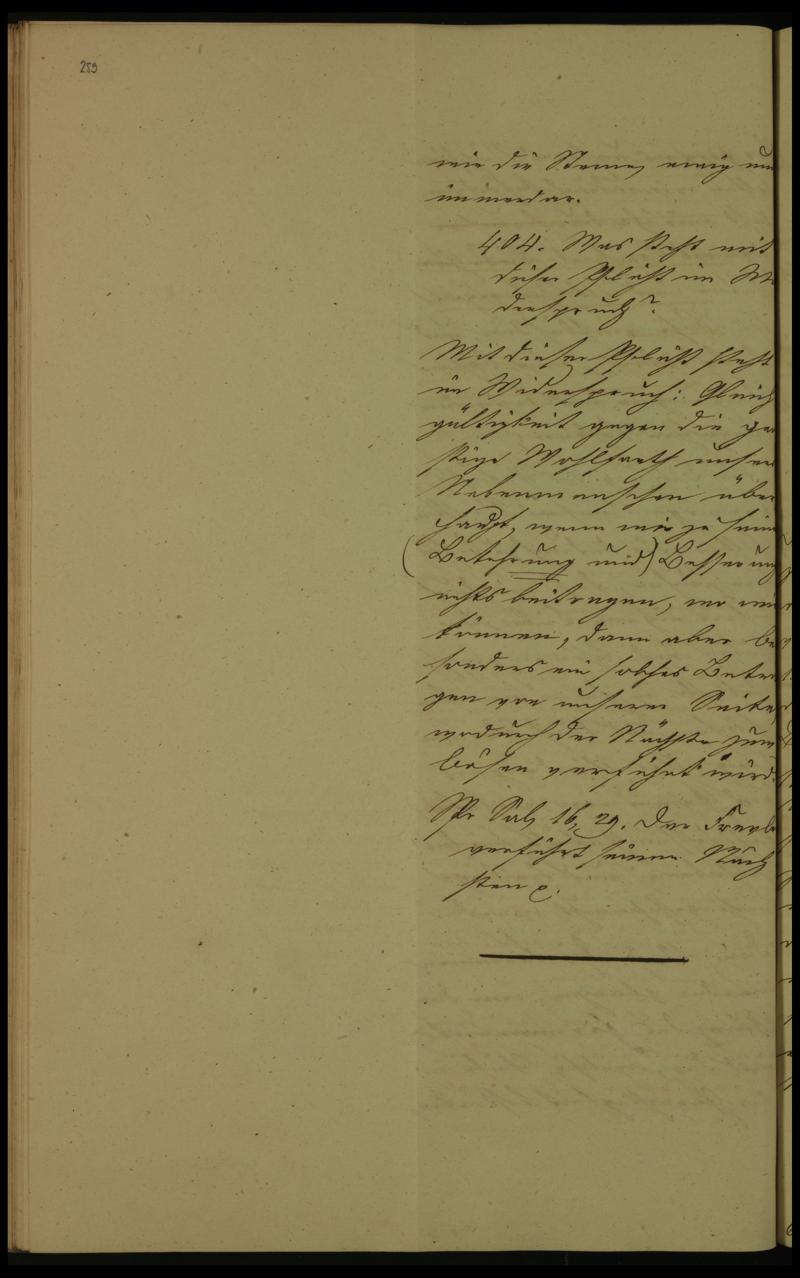 259
wie die Sterne, ewig und
immerdar.
404. Was steht mit
dieser Pflicht im Wi
derspruch?
Mit dieser Pflicht steht
im Widerspruch: Gleich
gültigkeit gegen die gei
stige Wohlfarth unserer
Nebenmenschen über
haupt, wenn wir zu seiner
(Bekehrung und) Besserung
nichts beitragen, wo wir
können, dann aber be
sonders ein solches Betra
gen von unserer Seite,
wodurch der Nächste zum
bösen verführt wird.
Spr Sal, 16, 29. Der Frevler
verführt seinen Näch
sten